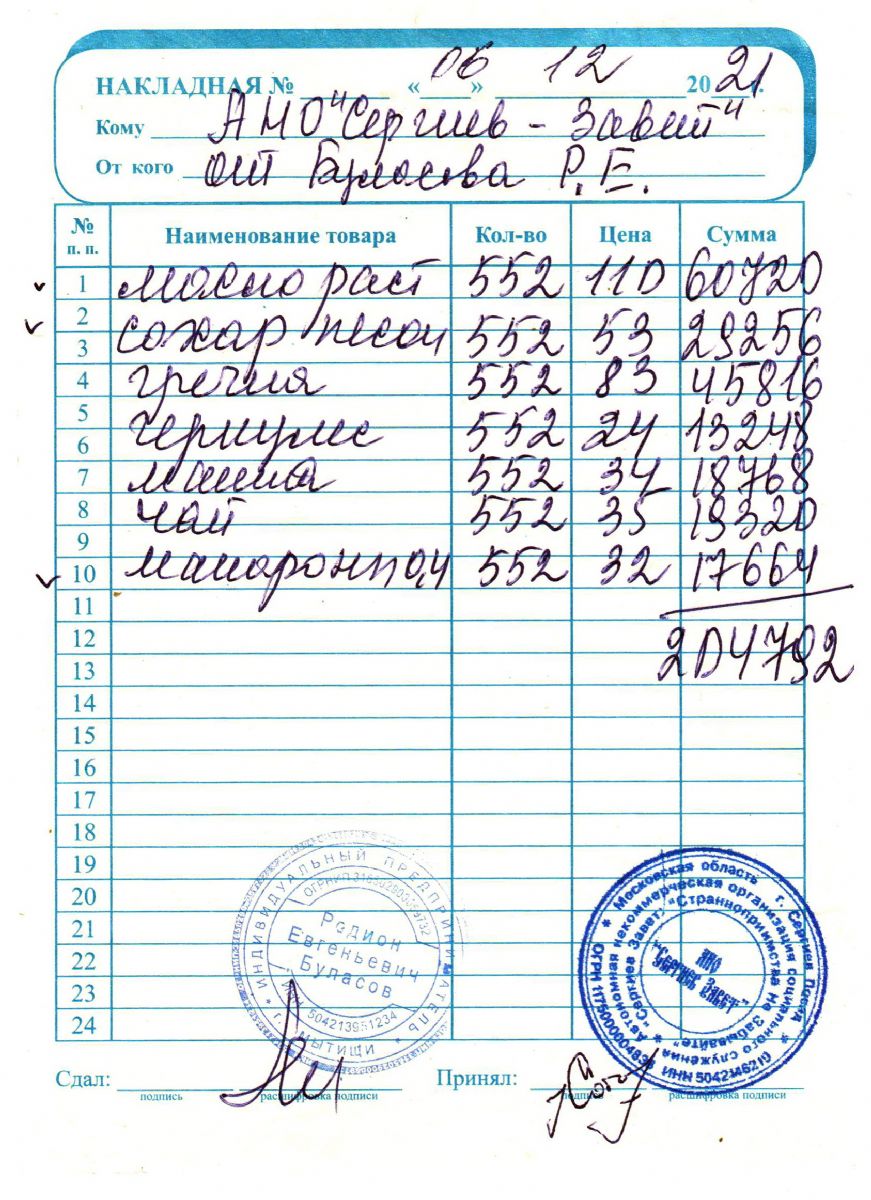 НАКЛАДНАЯ № «06» 12 2021 г.
Кому АНО "Сергиев - Завет"
От кого ИП Буласова Р.Е.
№ п. п. Наименование товара Кол-во Цена Сумма
1 масло раст 552 110 60720
2
3 сахар песок 552 53 29256
4 гречка 552 83 45816
5
6 геркулес 552 24 13248
7 манка 552 34 18768
8 чай 552 35 19320
9
10 макарон п 0,4 552 32 17664
11
12 204792
13
14
15
16
17
18
19
20
21
22
23
24
* ИНДИВИДУАЛЬНЫЙ ПРЕДПРИНИМАТЕЛЬ *
г. МЫТИЩИ
Родион
Евгеньевич
Буласов
ИНН 504213951234
* Московская область г. Сергиев Посад *
Автономная некоммерческая организация социального служения
"Сергиев Завет" "Странноприимства Не Забывайте"
ИНН 5042146210
АНО
"Сергиев Завет"
Сдал: Принял:
подпись расшифровка подписи подпись расшифровка подписи